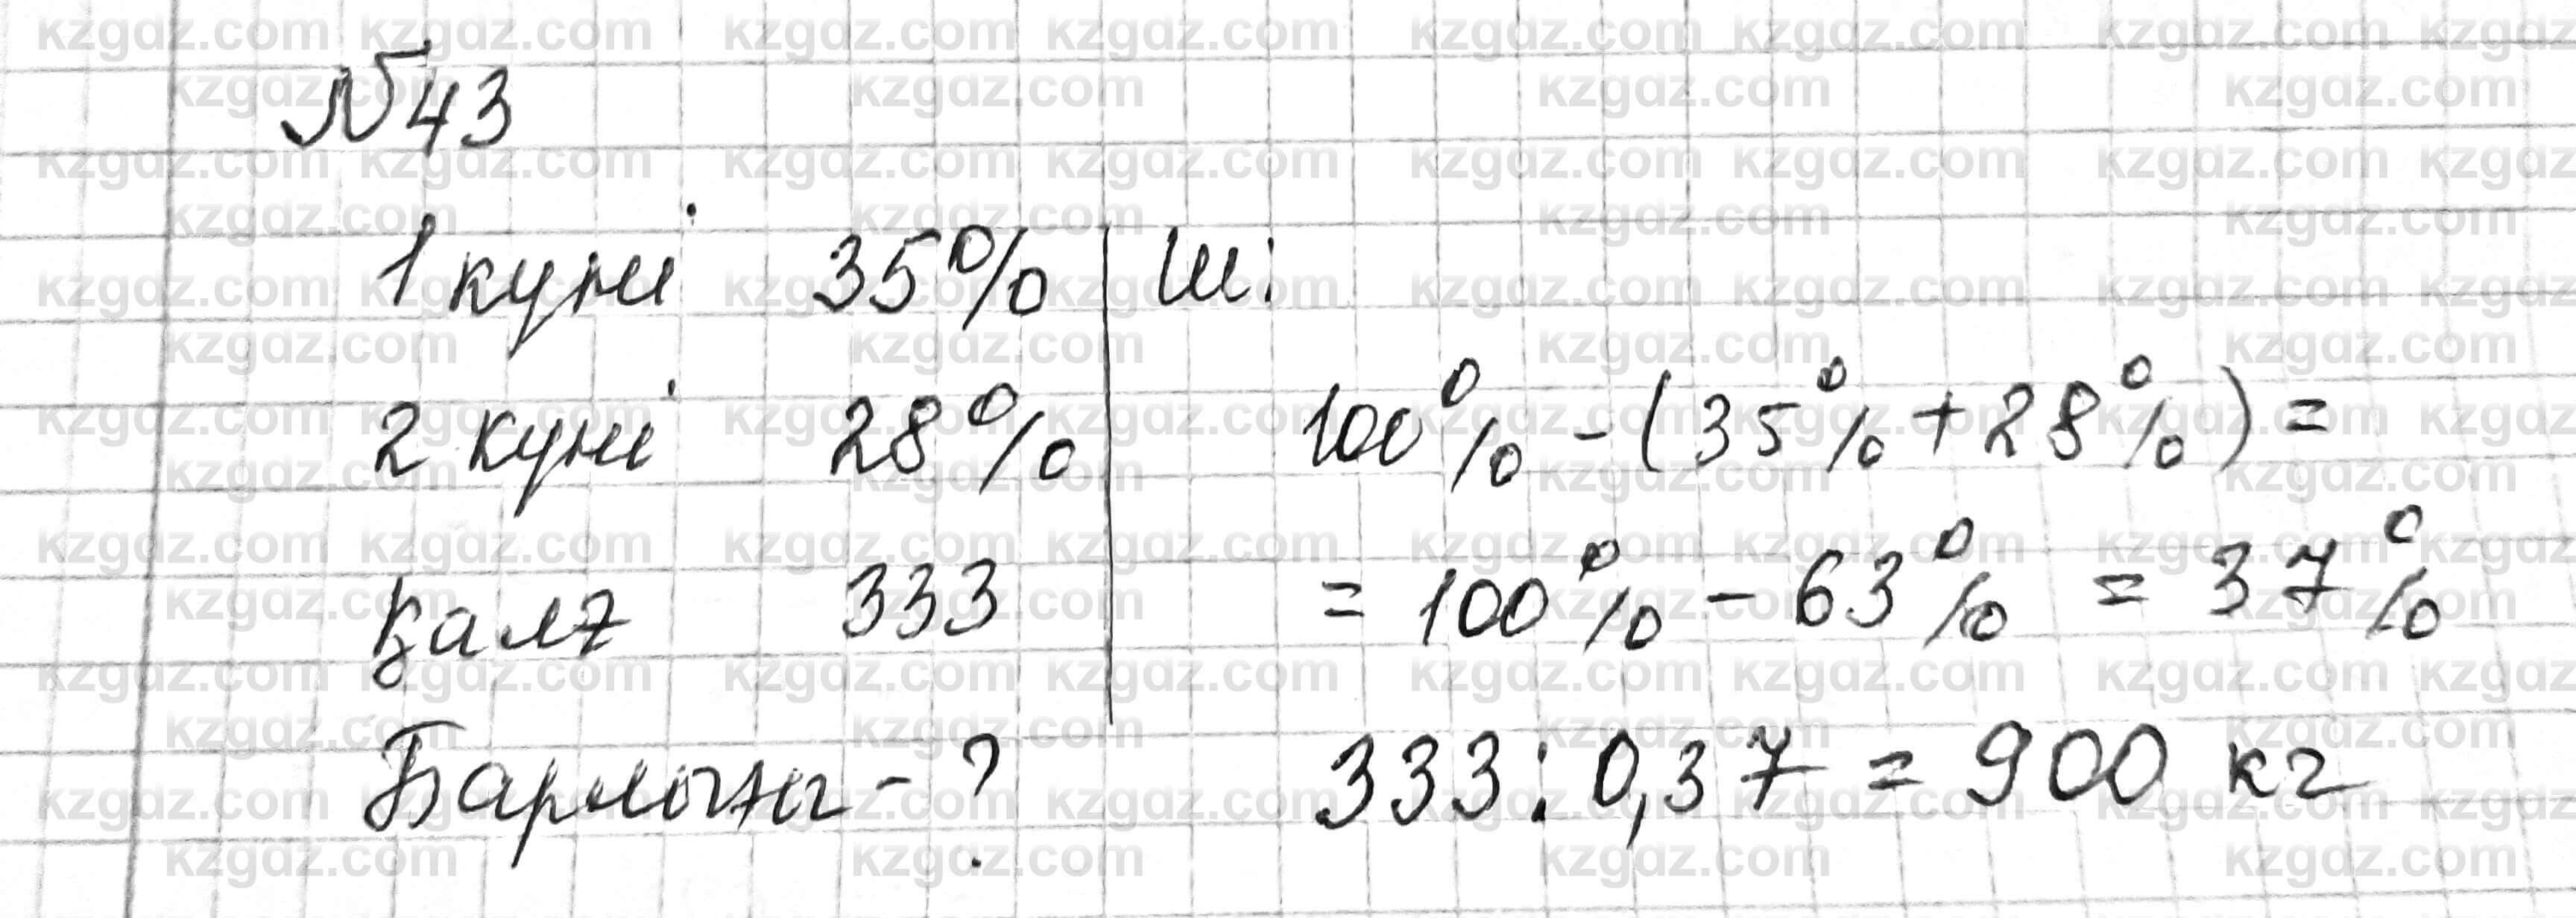 №43
1 күні 35%
2 күні 28%
қалғ 333
Барлығы - ?
Ш:
100% - (35% + 28%) =
= 100% - 63% = 37%
333 : 0,37 = 900 кг
kzgdz.com